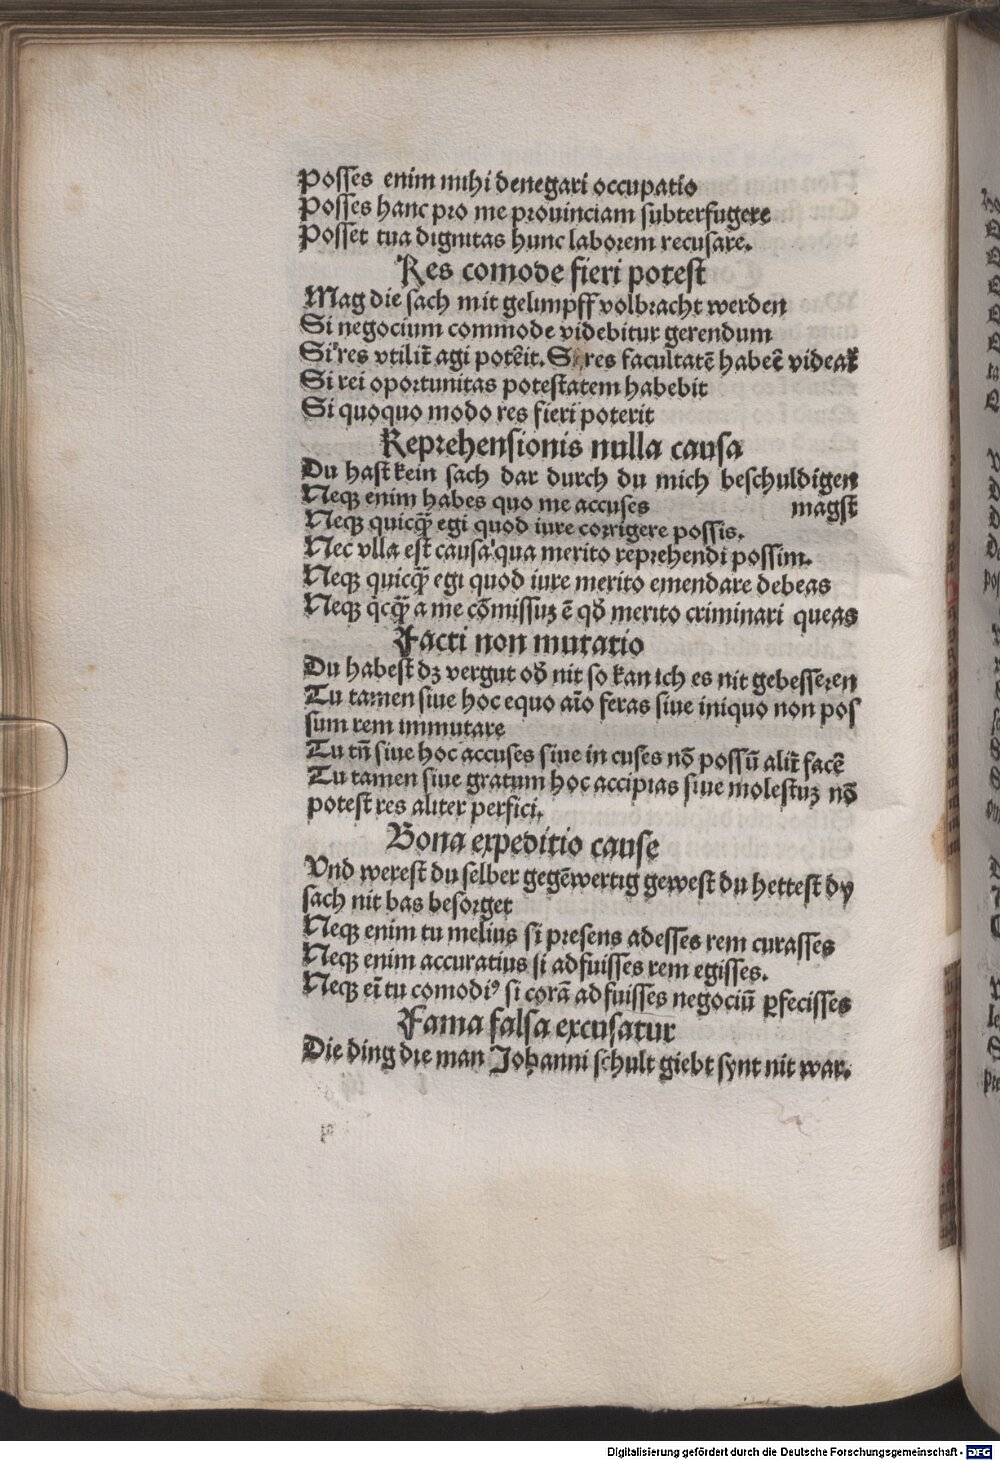 Posses enim mihi denegari occupatio
Posses hanc pro me prouinciam subterfugere
Posset tua dignitas hunc laborem recusare.
Res comode fieri potest
Mag die sach mit gelimpff volbracht werden
Si negocium commode videbitur gerendum
Si res vtilit̃ agi potẽit. Si res facultatẽ habeẽ videat᷑
Si rei oportunitas potestatem habebit
Si quoquo modo res fieri poterit
Reprehensionis nulla causa
Du hast kein sach dar durch du mich beschuldigen
Neqꝫ enim habes quo me accuses magst
Neqꝫ quicq̃ egi quod iure corrigere possis.
Nec vlla est causa qua merito reprehendi possim.
Neqꝫ quicq̃ egi quod iure merito emendare debeas
Neqꝫ q̇cq̃ a me cõmissuꝫ ẽ qð merito criminari queas
Facti non mutatio
Du habest dꝫ vergut oð nit so kan ich es nit gebesseren
Tu tamen siue hoc equo aĩo feras siue iniquo non pos
sum rem immutare
Tu tñ siue hoc accuses siue in cuses nõ possũ alit̃ facẽ
Tu tamen siue gratum hoc accipias siue molestuꝫ nõ
potest res aliter perfici.
Bona expeditio cause
Vnd werest du selber gegẽwertig gewest du hettest dy
sach nit bas besorget
Neqꝫ enim tu melius si presens adesses rem curasses
Neqꝫ enim accuratius si adfuisses rem egisses.
Neqꝫ eĩ tu comodiꝰ si corã adfuisses negociũ ꝑfecisses
Fama falsa excusatur
Die ding die man Johanni schult giebt synt nit war.
Digitalisierung gefördert durch die Deutsche Forschungsgemeinschaft - DFG